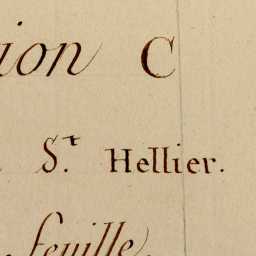 ion C
St. Hellier.
feuille.